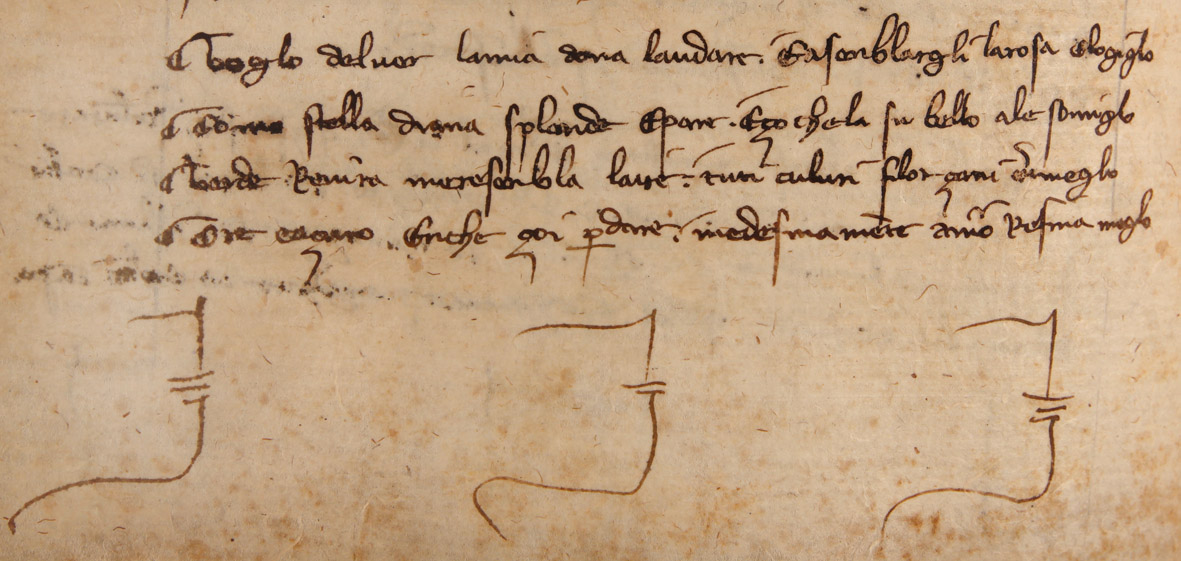 Voglo deluer lamia dona laudare. Easenblargli larosa elogiglo
Como stella diana splende Epare. Eço chela su bello ale somiglo
Verde Reuira meresenbla laire. tuti culuri filor çani Evmeglo
Ore eaçuro Eriche çoi p dare. medesmamēte amō Resma meglo